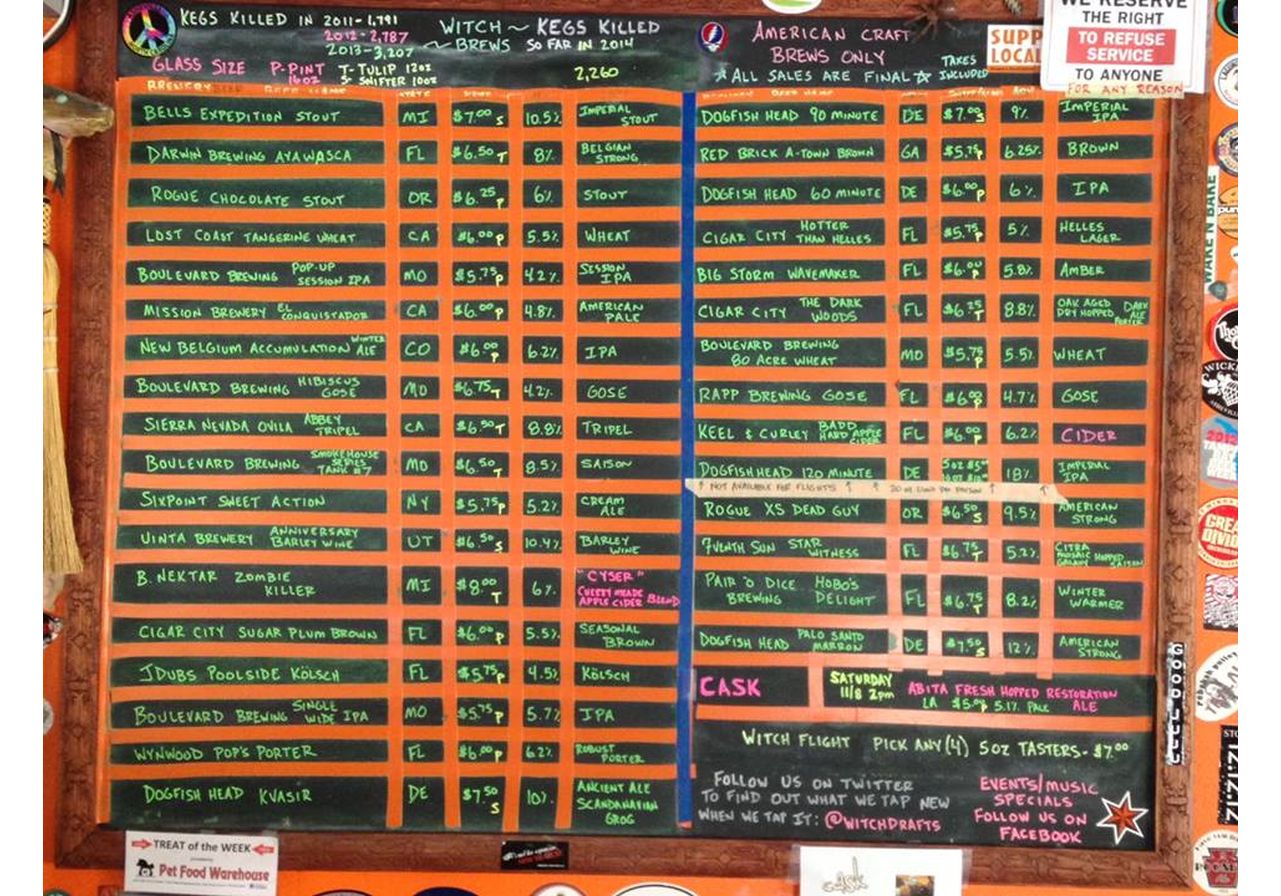 KEGS KILLED IN 2011-1,791
2012-2,787
2013-3,207
WITCH ~ KEGS KILLED
~ BREWS SO FAR IN 2014
2,260
GLASS SIZE P-PINT 16oz T-TULIP 12oz
S-SNIFTER 10oz
AMERICAN CRAFT
BREWS ONLY
ALL SALES ARE FINAL
TAKES
INCLUDED
SUPP
LOCAL
WE RESERVE
THE RIGHT
TO REFUSE
SERVICE
TO ANYONE
FOR ANY REASON
BELLS EXPEDITION STOUT MI $7.00 S 10.5% IMPERIAL STOUT
DARWIN BREWING AYAWASCA FL $6.50 T 8% BELGIAN STRONG
ROGUE CHOCOLATE STOUT OR $6.25 P 6% STOUT
LOST COAST TANGERINE WHEAT CA $6.00 P 5.5% WHEAT
BOULEVARD BREWING POP-UP SESSION IPA MO $5.75 P 4.2% SESSION IPA
MISSION BREWERY EL CONQUISTADOR CA $6.00 P 4.8% AMERICAN PALE
NEW BELGIUM ACCUMULATION WINTER ALE CO $6.00 P 6.2% IPA
BOULEVARD BREWING HIBISCUS GOSE MO $6.75 T 4.2% GOSE
SIERRA NEVADA OVILA ABBEY TRIPEL CA $6.50 T 8.8% TRIPEL
BOULEVARD BREWING SMOKEHOUSE SERIES TANK #7 MO $6.50 T 8.5% SAISON
SIXPOINT SWEET ACTION NY $5.75 P 5.2% CREAM ALE
UINTA BREWERY ANNIVERSARY BARLEY WINE UT $6.50 S 10.4% BARLEY WINE
B. NEKTAR ZOMBIE KILLER MI $8.00 T 6% "CYSER" CHERRY MEADE APPLE CIDER BLEND
CIGAR CITY SUGAR PLUM BROWN FL $6.00 P 5.5% SEASONAL BROWN
JDUBS POOLSIDE KÖLSCH FL $5.75 P 4.5% KÖLSCH
BOULEVARD BREWING SINGLE WIDE IPA MO $5.75 P 5.7% IPA
WYNWOOD POP'S PORTER FL $6.00 P 6.2% ROBUST PORTER
DOGFISH HEAD KVASIR DE $7.50 S 10% ANCIENT ALE SCANDANAVIAN GROG
DOGFISH HEAD 90 MINUTE DE $7.00 S 9% IMPERIAL IPA
RED BRICK A-TOWN BROWN GA $5.75 P 6.25% BROWN
DOGFISH HEAD 60 MINUTE DE $6.00 P 6% IPA
CIGAR CITY HOTTER THAN HELLES FL $5.75 P 5% HELLES LAGER
BIG STORM WAVEMAKER FL $6.00 P 5.8% AMBER
CIGAR CITY THE DARK WOODS FL $6.25 T 8.8% OAK AGED DRY HOPPED DARK ALE PORTER
BOULEVARD BREWING 80 ACRE WHEAT MO $5.75 P 5.5% WHEAT
RAPP BREWING GOSE FL $6.00 P 4.7% GOSE
KEEL & CURLEY BADD HARD APPLE CIDER FL $6.00 P 6.2% CIDER
DOGFISH HEAD 120 MINUTE DE 5oz 18% IMPERIAL IPA
↑ NOT AVAILABLE FOR FLIGHTS ↑ ↑ 20 oz LIMIT PER PERSON ↑ ↑
ROGUE XS DEAD GUY OR $6.50 S 9.5% AMERICAN STRONG
7VENTH SUN STAR WITNESS FL $6.75 T 5.2% CITRA MOSAIC HOPPED GALAXY SAISON
PAIR O DICE BREWING HOBO'S DELIGHT FL $6.75 T 8.2% WINTER WARMER
DOGFISH HEAD PALO SANTO MARRON DE $7.50 S 12% AMERICAN STRONG
CASK SATURDAY 11/8 2pm ABITA FRESH HOPPED RESTORATION ALE
LA $5.00 P 5.1% PALE
WITCH FLIGHT PICK ANY (4) 5OZ TASTERS - $7.00
FOLLOW US ON TWITTER
TO FIND OUT WHAT WE TAP NEW
WHEN WE TAP IT: @WITCHDRAFTS
EVENTS/MUSIC
SPECIALS
FOLLOW US ON
FACEBOOK
TREAT of the WEEK
Pet Food Warehouse
cask
WAKE N BAKE